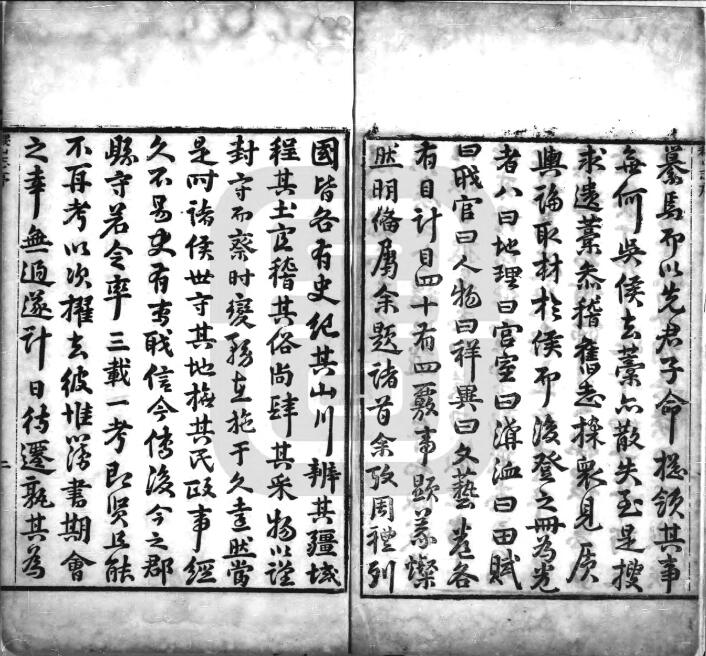 纂焉而以先君子命摠領其事
無何吳侯去藁亦散失至是搜
求遺藁叅稽舊志採衆見質
輿論取材於侯而後登之冊為卷
者八曰地理曰宮室曰漕洫曰田賦
曰職官曰人物曰祥異曰文藝卷各
有目計目四十有四覈事顯義燦
然明備屬余題諸首余攷周禮列
國皆各有史紀其山川辨其疆域
程其土宜稽其俗尚肆其采物以謹
封守而察时變務在施于久遠然當
是时諸侯世守其地撫其民政事經
久不易史有専職信今傳後今之郡
縣守若令率三載一考即賢且能
不再考以次擢去彼惟以簿書期會
之幸無過遂計日待遷孰其為
二